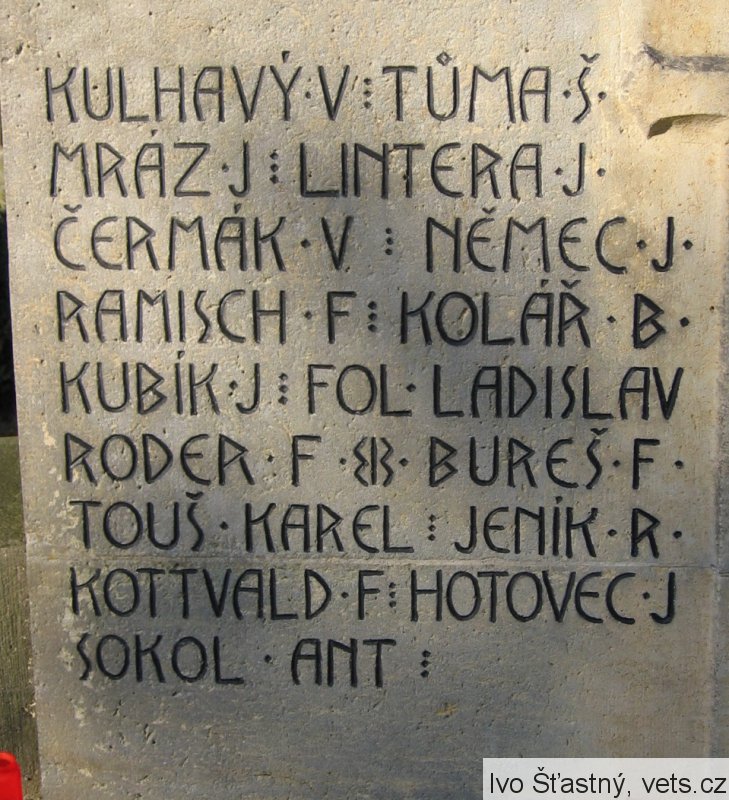 KULHAVÝ·V⁝TŮMA·Š·
MRÁZ·J⁝LINTERA·J·
ČERMÁK·V⁝NĚMEC·J·
RAMISCH·F⁝KOLÁŘ·B·
KUBÍK·J⁝FOL·LADISLAV
RODER·F·BUREŠ·F·
TOUŠ·KAREL⁝JENÍK·R·
KOTTVALD·F⁝HOTOVEC·J
SOKOL·ANT⁝
Ivo Šťastný, vets.cz